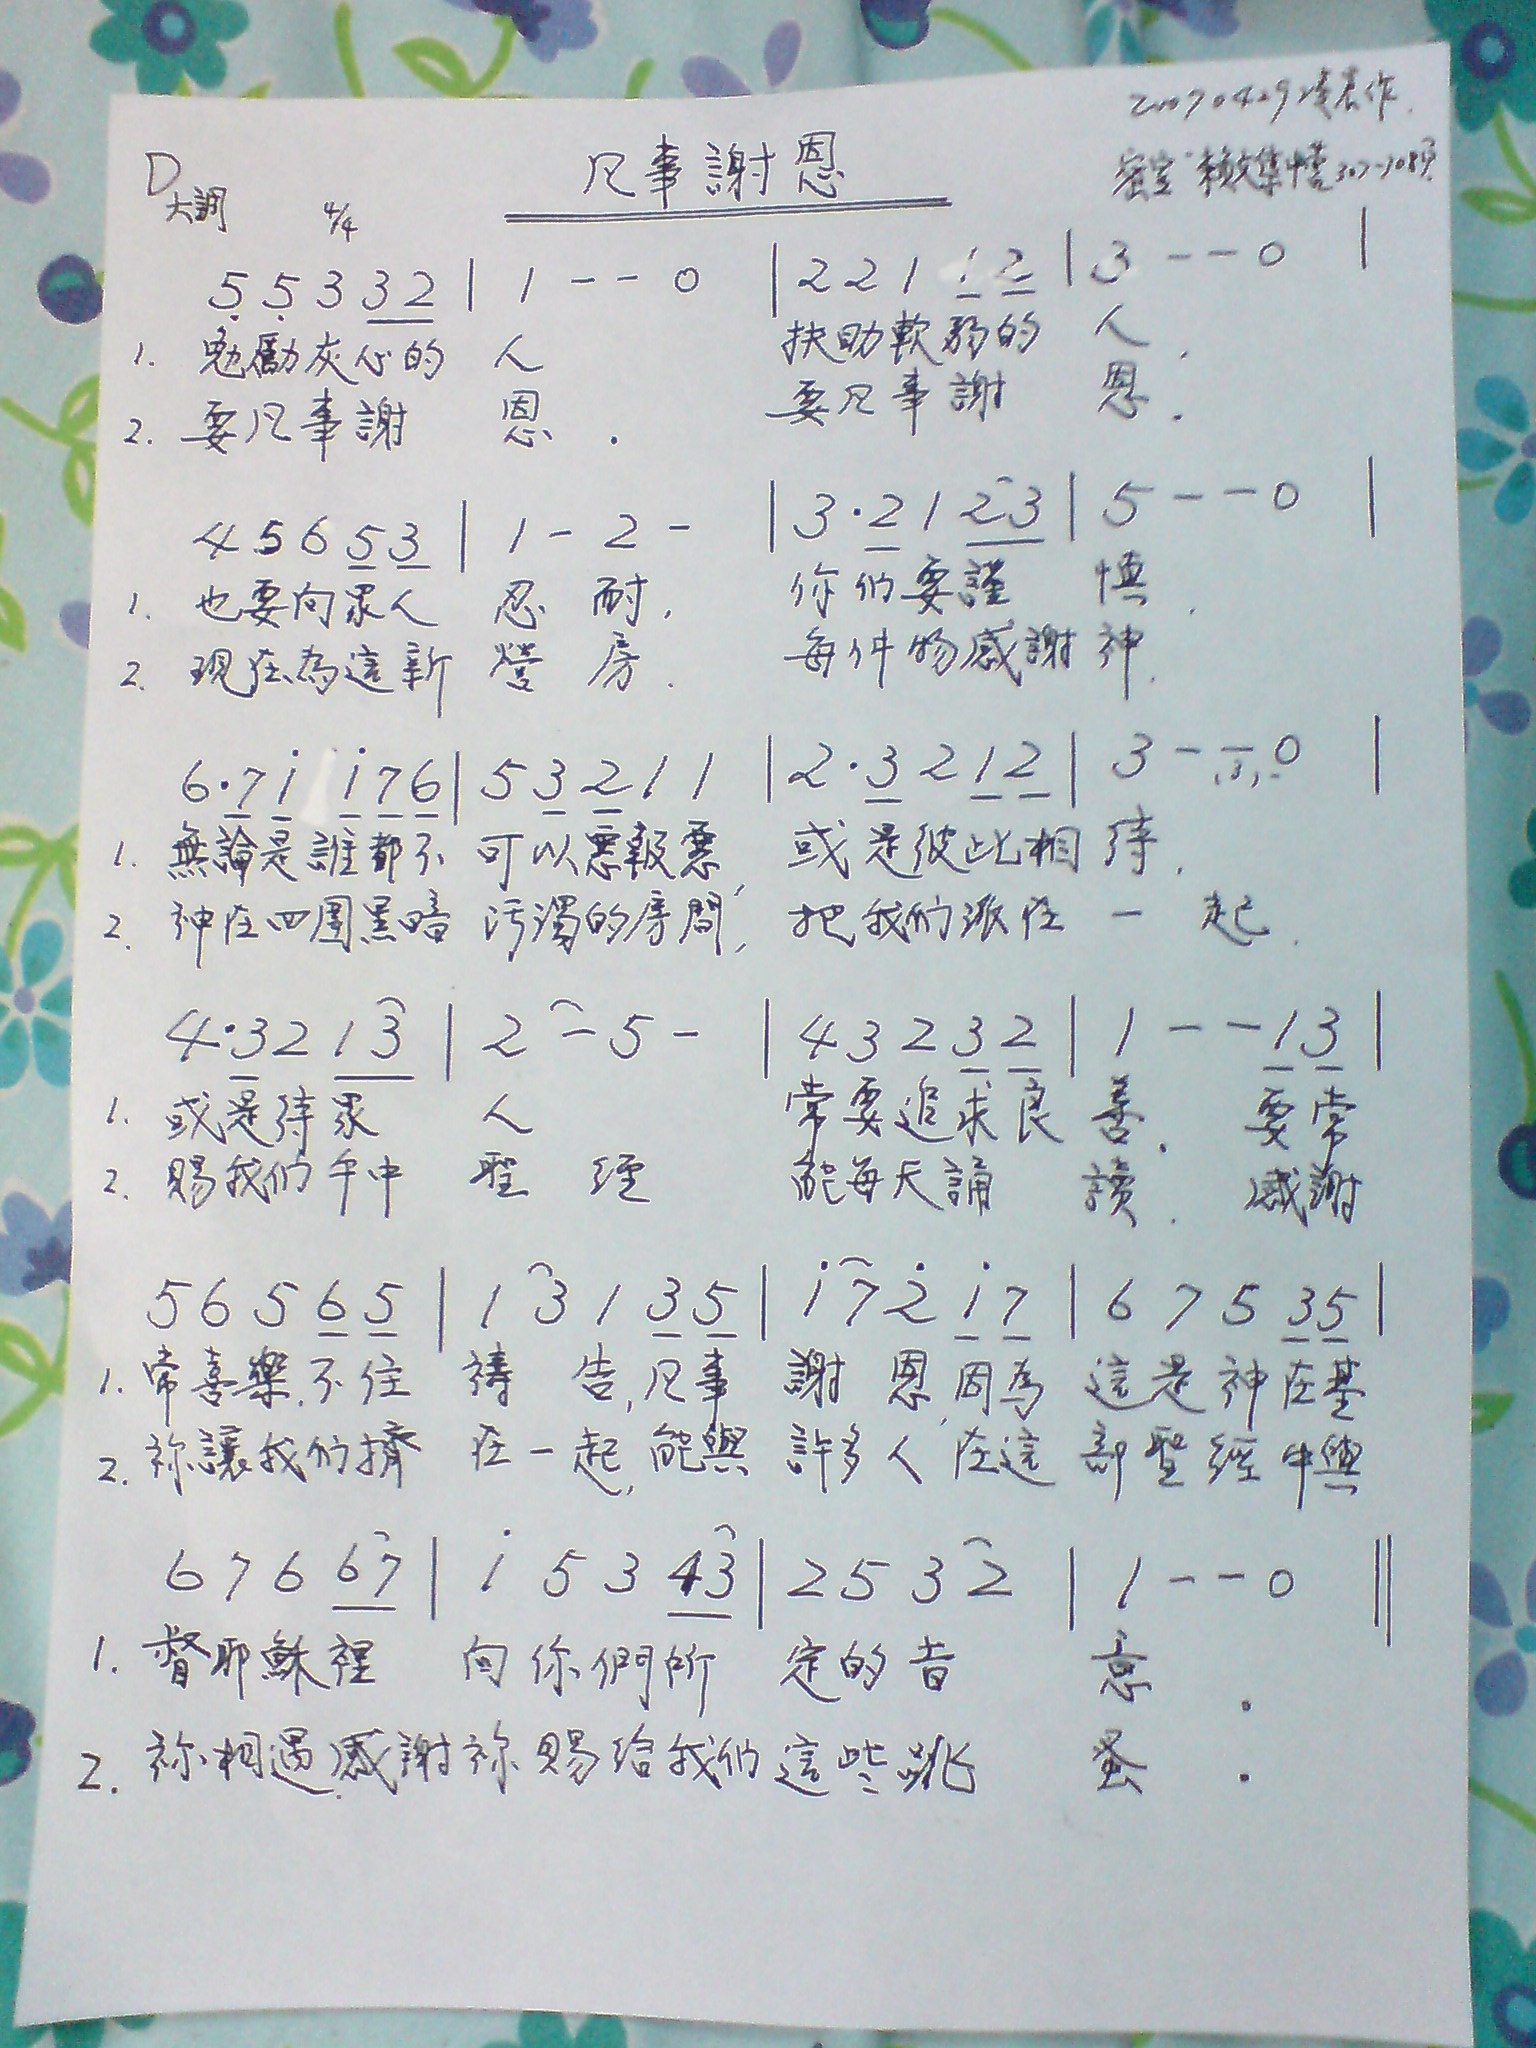 20070429
凡事謝恩
D大調 4/4
5 5 3 3 2 | 1 - - 0 | 2 2 1 1 2 | 3 - - 0 |
1. 勉勵灰心的 人 扶助軟弱的 人,
2. 要凡事謝 恩. 要凡事謝 恩.
4 5 6 5 3 | 1 - 2 - | 3 · 2 1 2 3 | 5 - - 0 |
1. 也要向眾人 忍 耐, 你們要謹 慎,
2. 現在為這新 營 房. 每件物感謝 神.
6 · 7 i i 7 6 | 5 3 2 1 1 | 2 · 3 2 1 2 | 3 - - (3) 0 |
1. 無論是誰都不 可以惡報惡, 或是彼此相 待.
2. 神在四圍黑暗 污濁的房間, 把我們派在 一 起.
4 · 3 2 1 3 | 2 - 5 - | 4 3 2 3 2 | 1 - - 1 3 |
1. 或是待眾 人 常要追求良 善. 要常
2. 賜我們手中 聖 經 能每天誦 讀. 感謝
5 6 5 6 5 | 1 3 1 3 5 | i 7 2 i 7 | 6 7 5 3 5 |
1. 常喜樂.不住 禱 告,凡事 謝 恩,因為 這是神在基
2. 祢讓我們擠 在一起,能與 許多人 在這 部聖經中與
6 7 6 6 7 | i 5 3 4 3 | 2 5 3 2 | 1 - - 0 ‖
1. 督耶穌裡 向你們所 定的旨 意 .
2. 祢相遇.感謝祢賜給我們這些跳 蚤 .